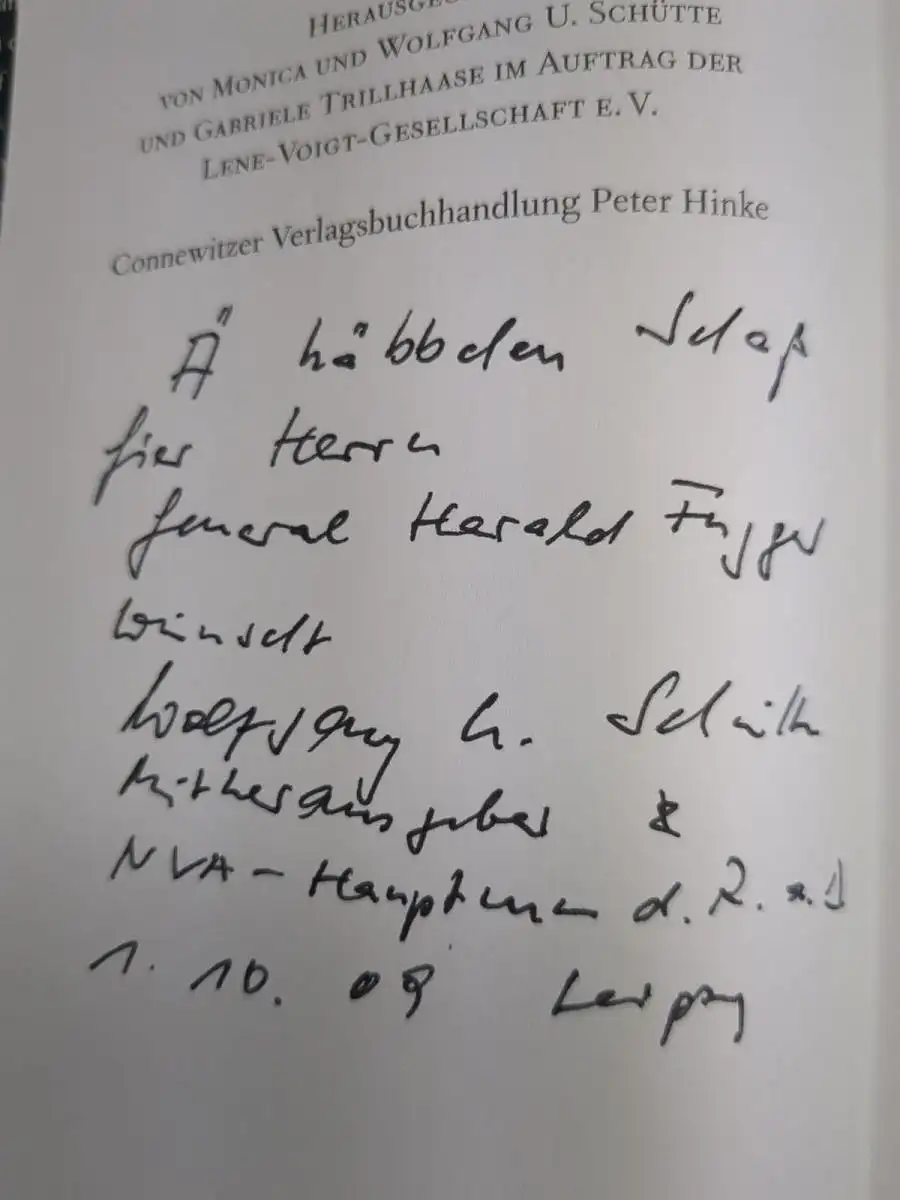 HERAUSGEG
VON MONICA UND WOLFGANG U. SCHÜTTE
UND GABRIELE TRILLHAASE IM AUFTRAG DER
LENE-VOIGT-GESELLSCHAFT E. V.
Connewitzer Verlagsbuchhandlung Peter Hinke
Ä häbbchen Schaß
fier Herrn
General Harald Fugger
wünscht
Wolfgang U. Schütte
Mitherausgeber &
NVA-Hauptmann d. R. a. D
1. 10. 09 Leipzig